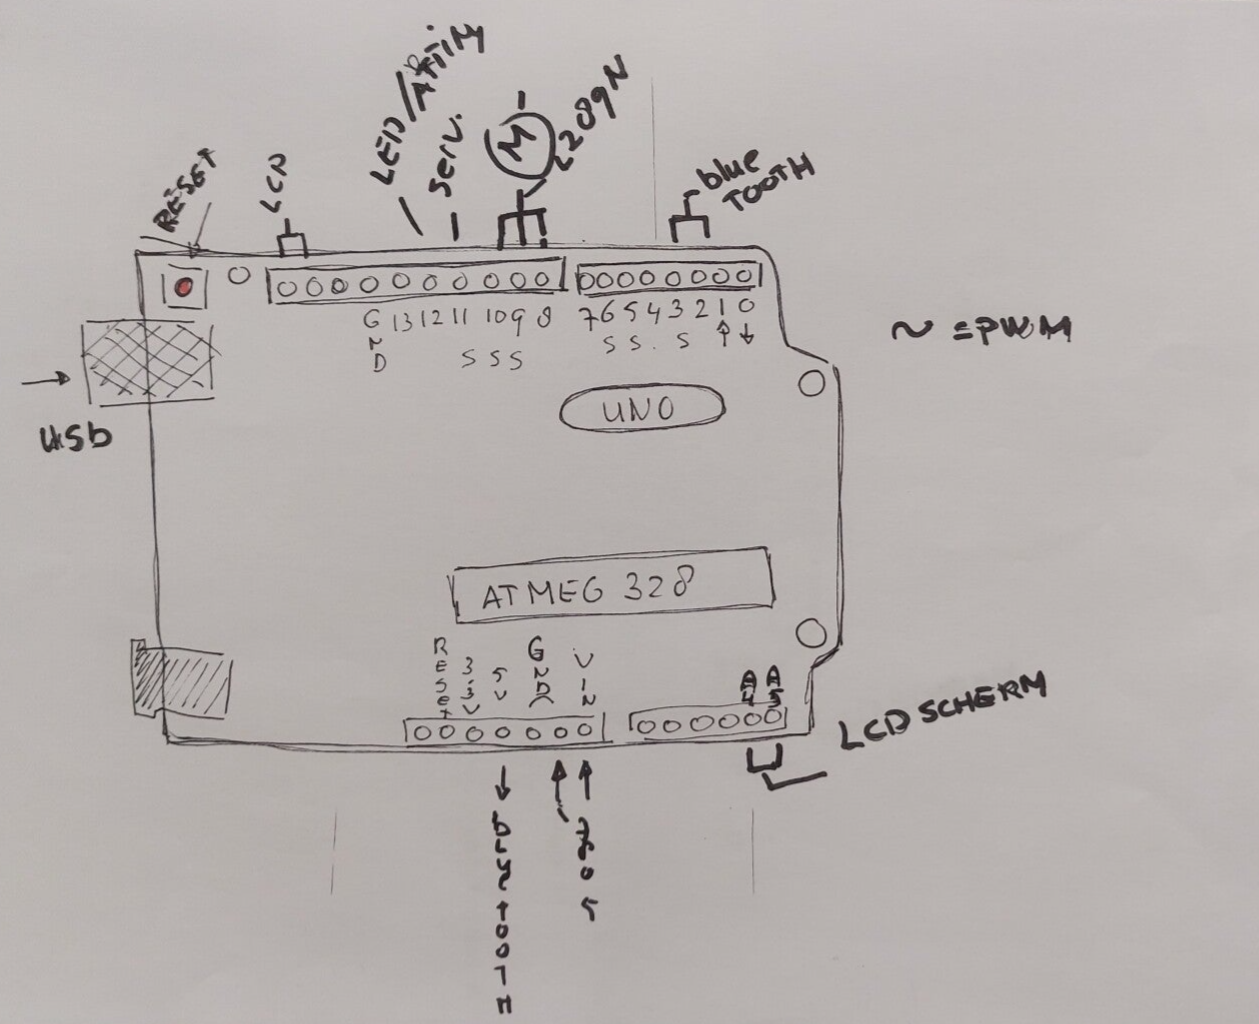 RESET
LCD
LED/
SERV.
M
bLUE
TOOTH
G 13 12 11 10 9 8 7 6 5 4 3 2 1 0
N
D
S S S S S . S
~ = PWM
USb
UNO
ATMEG 328
RESET
3.3V
5V
GND
VIN
A4
A5
LCD SCHERM
7805